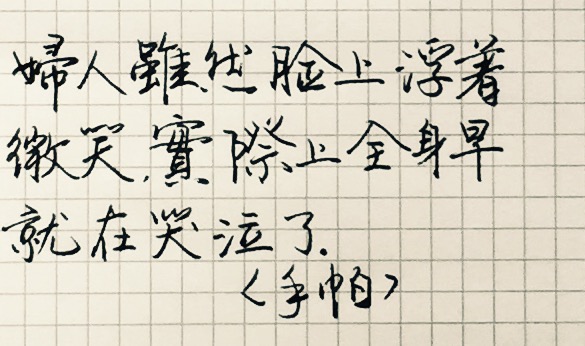 婦人雖然脸上浮着
微笑,實際上全身早
就在哭泣了.
<手帕>